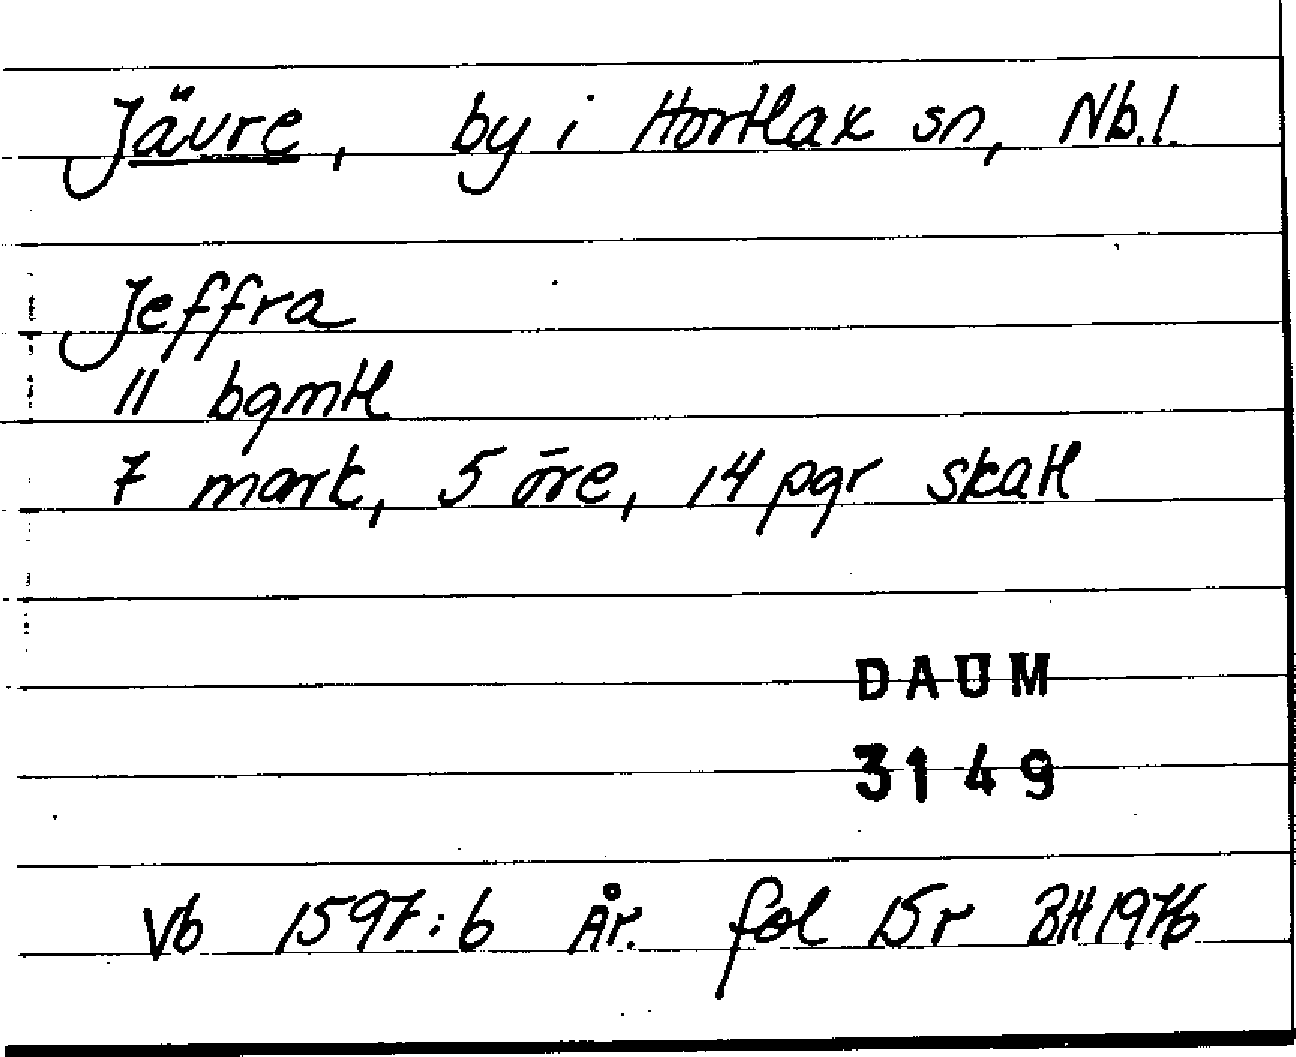 Jävre, by i Hortlax sn, Nb.l.
Jeffra
11 bgmtl
7 mark, 5 öre, 14 pgr skatt
DAUM
3149
Vb 1597:6 År. fol 15r BH 1976